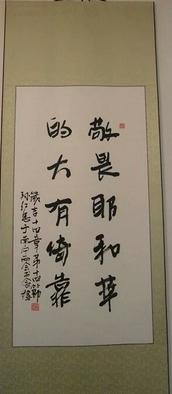 敬畏耶和華
的大有倚靠
箴言十四章第十四節